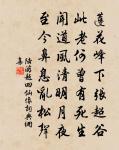 蓮花峰下張超谷
此老何曾有死生
聞道風清明月夜
至今鼻息亂松聲
陸游題四仙像詞典網
集